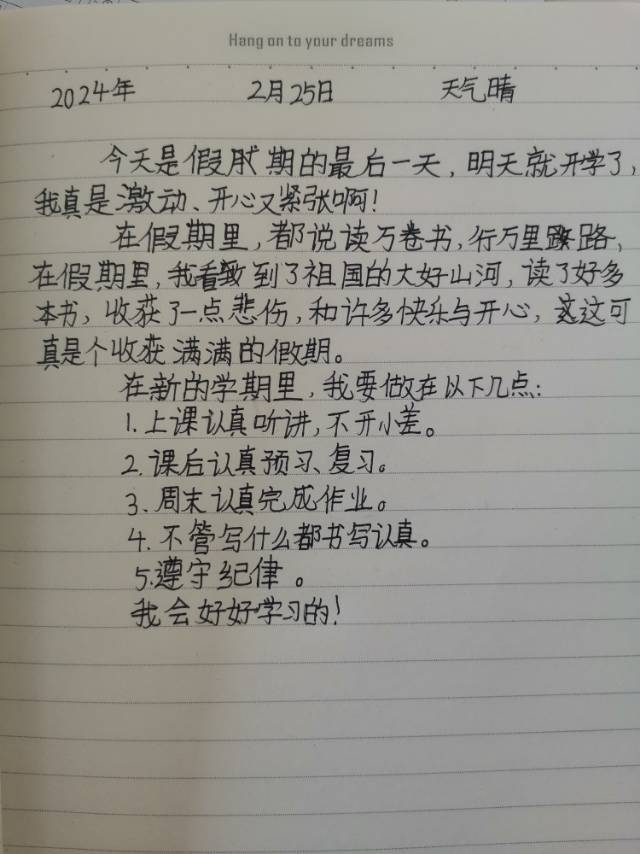 Hang on to your dreams
2024年 2月25日 天气晴
今天是假期的最后一天，明天就开学了，
我真是激动、开心又紧张啊！
在假期里，都说读万卷书，行万里路，
在假期里，我看到了祖国的大好山河，读了好多
本书，收获了一点悲伤，和许多快乐与开心，这可
真是个收获满满的假期。
在新的学期里，我要做在以下几点：
1.上课认真听讲，不开小差。
2.课后认真预习、复习。
3.周末认真完成作业。
4.不管写什么都书写认真。
5.遵守纪律。
我会好好学习的！